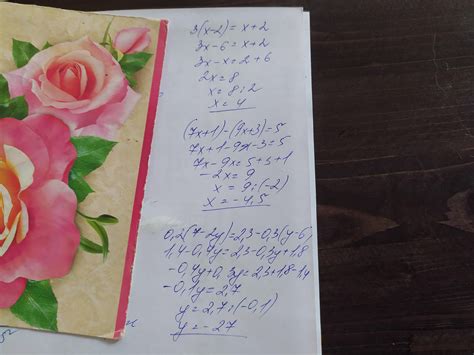 3(x-2)=x+2
3x-6=x+2
3x-x=2+6
2x=8
x=8:2
x=4
(7x+1)-(9x+3)=5
7x+1-9x-3=5
7x-9x=5+3+1
-2x=9
x=9:(-2)
x=-4,5
0,2(7-2y)=2,3-0,3(y-6)
1,4-0,4y=2,3-0,3y+1,8
-0,4y+0,3y=2,3+1,8-1,4
-0,1y=2,7
y=2,7:(-0,1)
y=-27